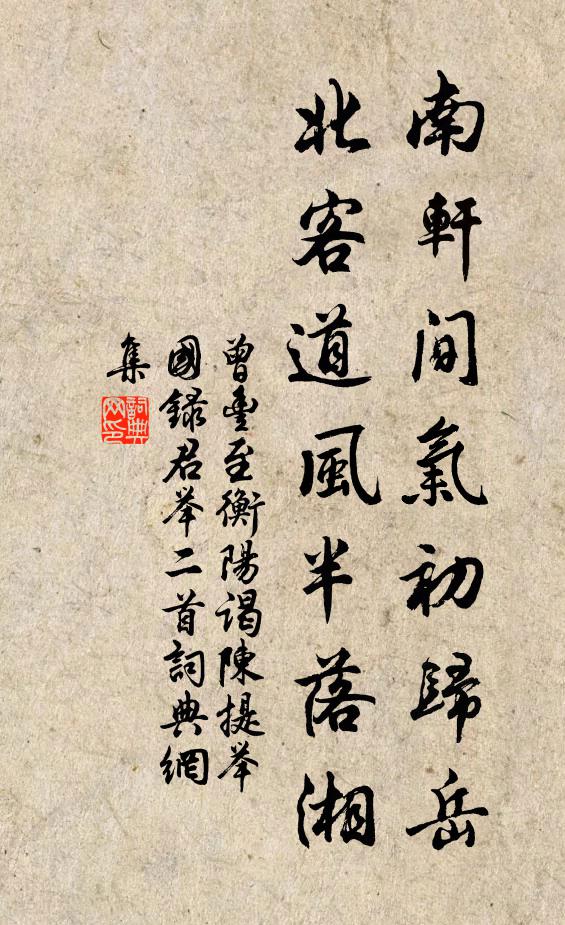 南軒間氣初歸岳
北客道風半落湘
曾豐至衡陽謁陳提举
國録君举二首詞典網
集
詞典網印